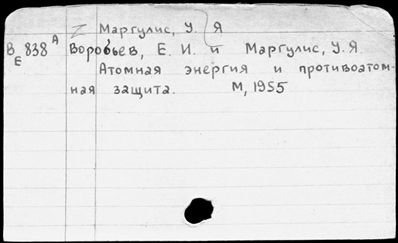 Маргулис, У. Я
В 838 А Воробьев, Е. И. и Маргулис, У. Я.
Е
Атомная энергия и противоатом-
ная защита. М, 1955